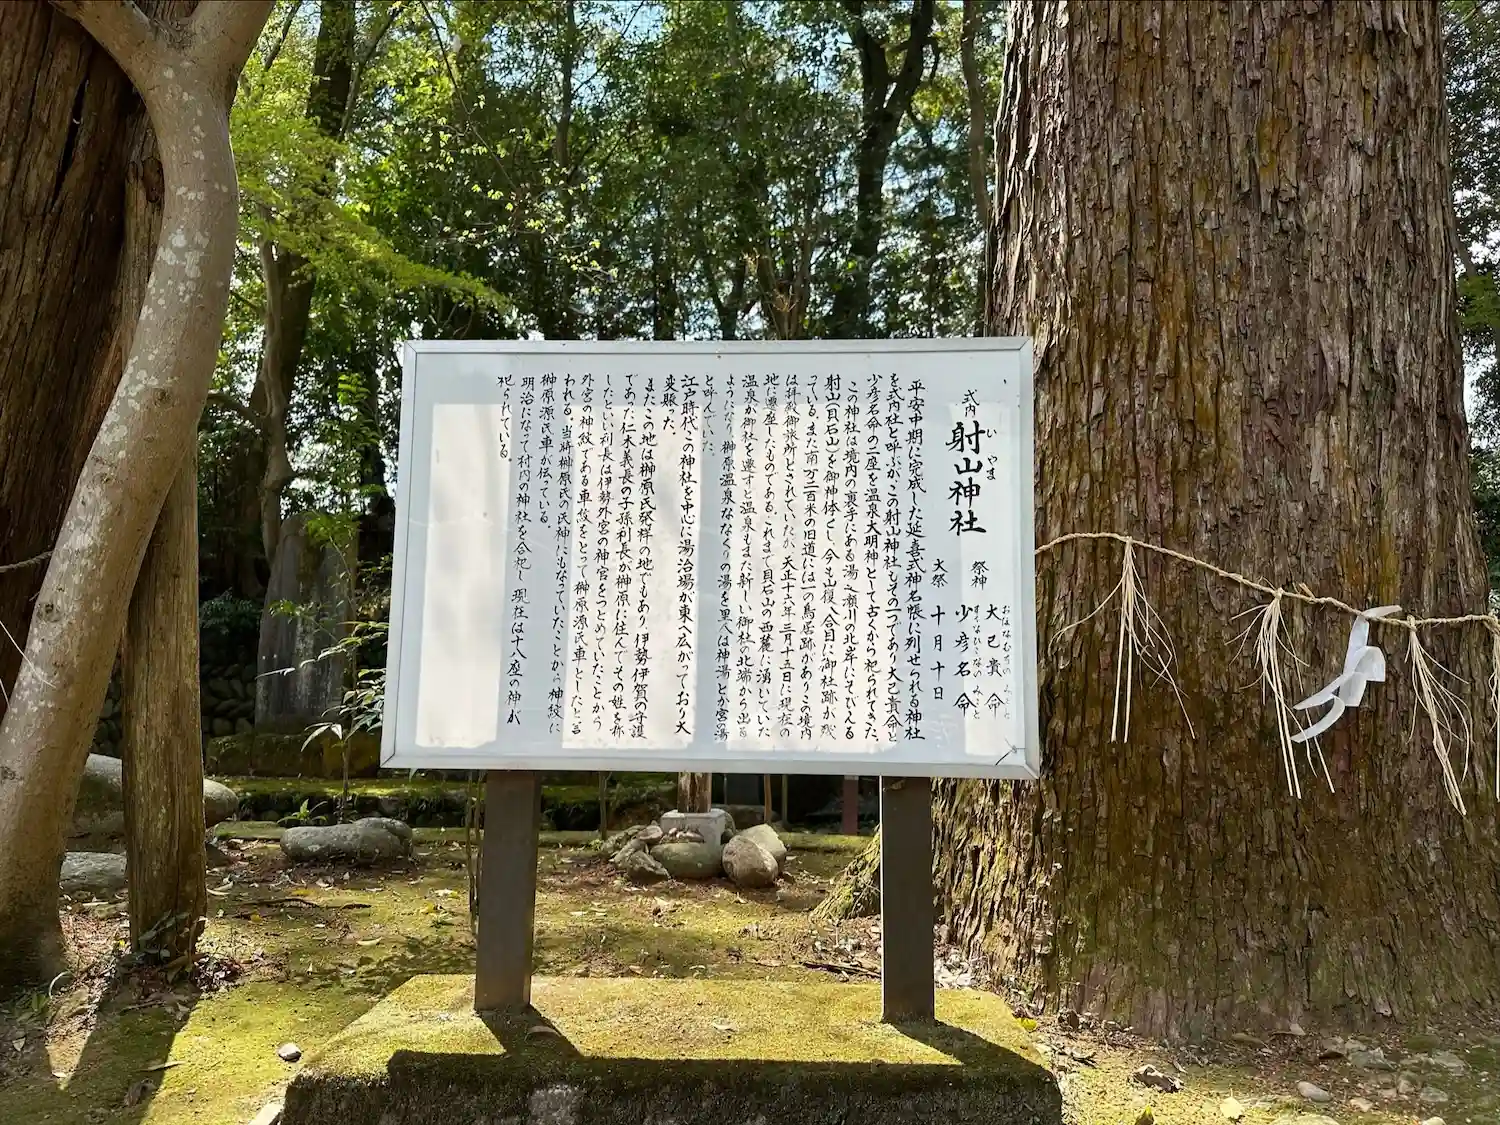 式内 射山神社
いやま
祭神 大己貴命
おほなむちのみこと
少彦名命
すくなひこなのみこと
大祭 十月十日
平安中期に完成した延喜式神名帳に列せられる神社
を式内社と呼ぶが、この射山神社もその一つであり大己貴命と
少彦名命の二座を温泉大明神として古くから祀られてきた。
この神社は境内の裏手にある湯之瀬川の北岸にそびえる
射山(貝石山)を御神体とし、今も山腹八合目に御社跡が残
っている。また南方二百米の旧道には一の鳥居跡がありこの境内
は拝殿御旅所とされていたが天正十六年三月十五日に現在の
地に遷座したものである。これまで貝石山の西麓に湧いていた
温泉が御社を遷すと温泉もまた新しい御社の北端から出る
ようになり、榊原温泉ななくりの湯を里人は神湯とか宮の湯
と呼んでいた。
江戸時代この神社を中心に湯治場が東へ広がっており大
来賑った。
またこの地は榊原氏発祥の地でもあり、伊勢伊賀の守護
であった仁木義長の子孫利長が榊原に住んでその姓を称
したといい利長は伊勢外宮の神官をつとめていたことから
外宮の神紋である車紋をとって榊原源氏車としたと言
われる。当時榊原氏の氏神にもなっていたことから神紋に
榊原源氏車が伝っている。
明治になって村内の神社を合祀し現在は十八座の神が
祀られている。